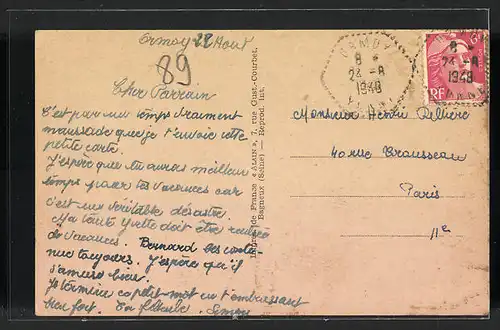 Ormoy 22 Aout
89
Cher Parrain
C'est par un temps vraiment
maussade que je t'envoie cette
petite carte.
J'espère que tu auras meilleur
temps pour tes vacances car
c'est un véritable désastre.
Ma tante Yvette doit être rentrée
de vacances. Bernard
toujours. J'espère qu'il
s'amuse bien.
Je termine ce petit mot en t'embrassant
bien fort. Ta filleule.
Images de France « ALAIN », 7, rue Gust.-Courbet,
Bagneux (Seine) — Reprod. Int.
ORMOY
8 *
24 -8
1948
YONNE
8 *
24 -8
1948
YONNE
RF
Monsieur Henri
40 rue Trousseau
Paris
11e